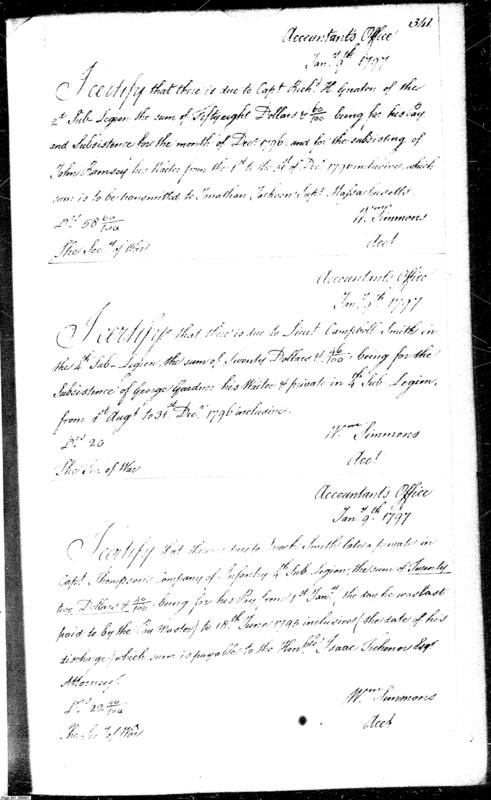 341
Accountants Office
Jany 5th 1797
I certify that there is due to Capt Richd H Greaton of the
2d Sub Legion the sum of Fifty eight Dollars & 60/100 being for his Pay
and Subsistence for the month of Decr 1796 and for the subsisting of
John Ramsey his Waiter from the 1st to the 31st of Decr 1796 inclusive, which
sum is to be transmitted to Jonathan Jackson Supt Massachusetts.
Drs 58 60/100
Wm Simmons
The Secy of War
Acct
Accountants Office
Jany 9th 1797
I certify that there is due to Lieut Campbell Smith in
the 4th Sub-Legion, the sum of Twenty Dollars & 46/100 being for the
Subsistence of George Gardner his Waiter & private in 4th Sub Legion,
from 1st Augt to 31st Decr 1796 inclusive.
Drs 20
Wm Simmons
The Sec of War
Acct
Accountants Office
Jany 9th 1797
I certify that there is due to Smith late a private in
Capt Thompsons Company of Infantry 4th Sub Legion, the sum of Twenty
two Dollars & 40/100 being for his Pay from 1st Jany (the day he was last
paid to by the Pay Master) to 18th June 1795 inclusive (the date of his
discharge) which sum is payable to the Honble Isaac Tichenor Esqr
Attorney.
Drs 22 40/100
Wm Simmons
The Secy of War
Acct